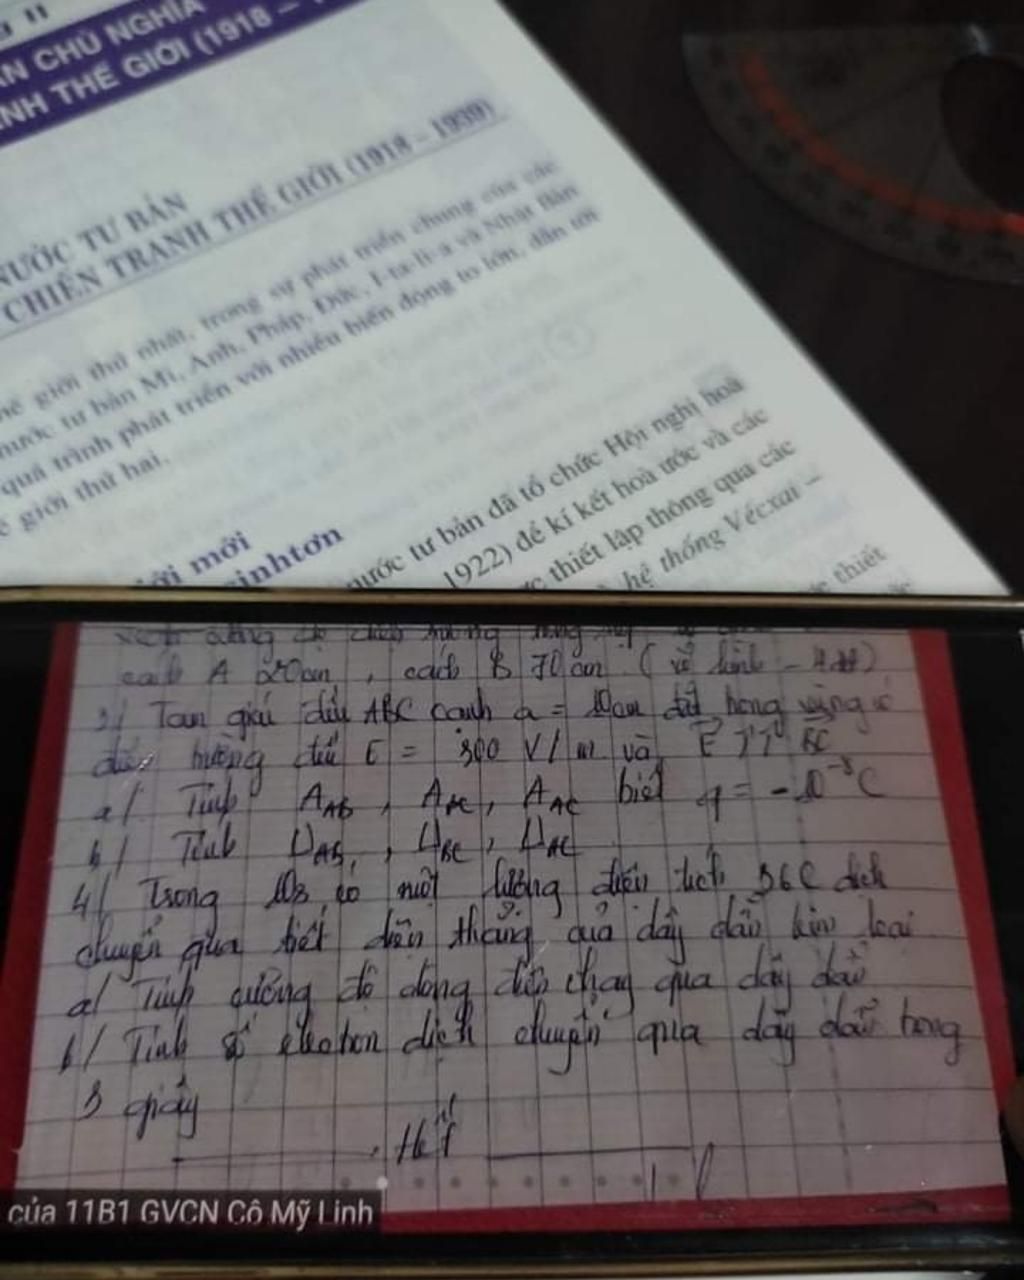 ÂN CHỦ NGHĨA
ÌNH THẾ GIỚI (1918 –
NƯỚC TƯ BẢN
CHIẾN TRANH THẾ GIỚI (1918 – 1939)
thế giới thứ nhất, trong sự phát triển chung của các
nước tư bản Mĩ, Anh, Pháp, Đức, I-ta-li-a và Nhật Bản
quá trình phát triển với nhiều biến động to lớn, dẫn tới
ế giới thứ hai.
ới mới
sinhtơn
nước tư bản đã tổ chức Hội nghị hoà
1922) để kí kết hoà ước và các
thiết lập thông qua các
hệ thống Vécxai –
thiết
cách A 20cm, cách B 70cm (vẽ hình
3/ Tam giác đều ABC cạnh a = 10cm đặt trong vùng có
điện trường đều E = 300 V/m và E ↑↑ BC
a/ Tính A_AB, A_BC, A_AC biết q = -10⁻⁸C
b/ Tính U_AB, U_BC, U_AC
4/ Trong 10s có một lượng điện tích 36C dịch
chuyển qua tiết diện thẳng của dây dẫn kim loại
a/ Tính cường độ dòng điện chạy qua dây dẫn
b/ Tính số electron dịch chuyển qua dây dẫn trong
3 giây
Hết
của 11B1 GVCN Cô Mỹ Linh